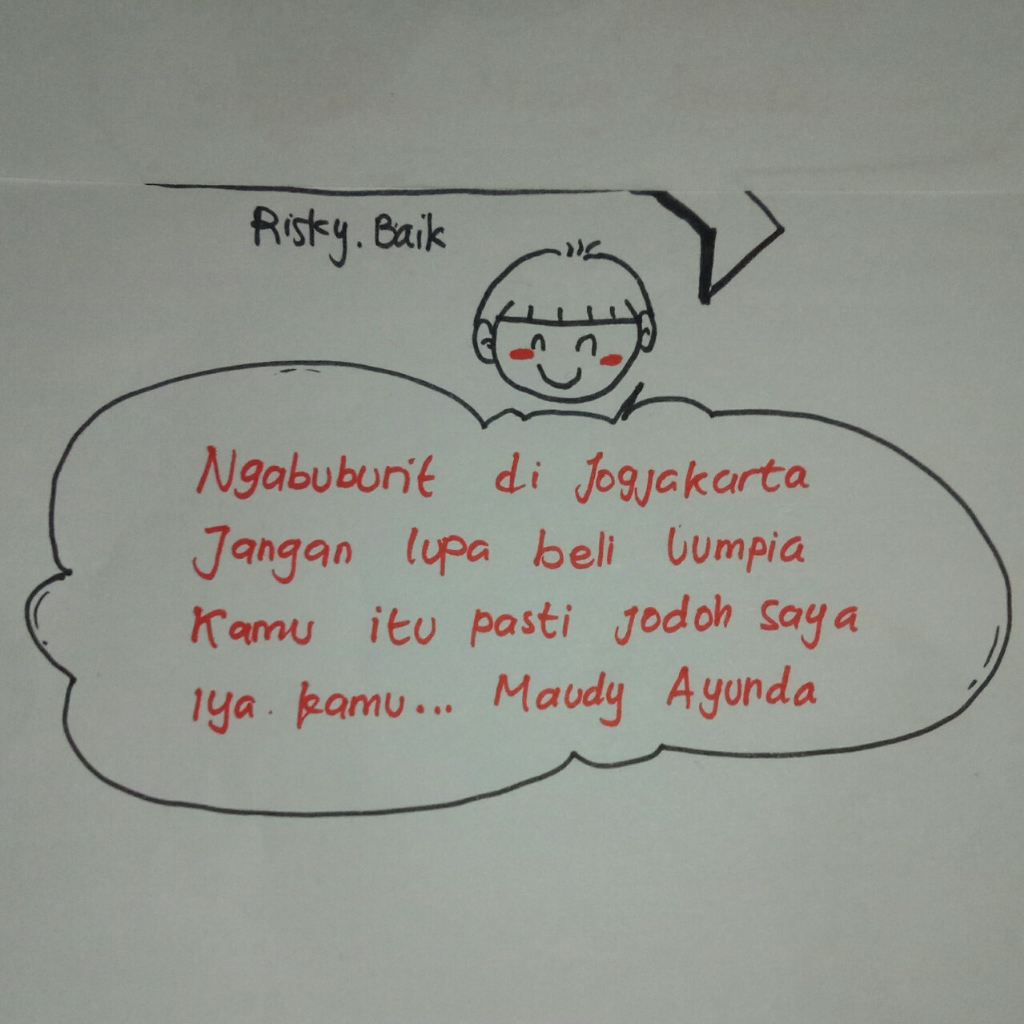 Risky. Baik
Ngabuburit di Jogjakarta
Jangan lupa beli Lumpia
Kamu itu pasti jodoh saya
Iya kamu... Maudy Ayunda